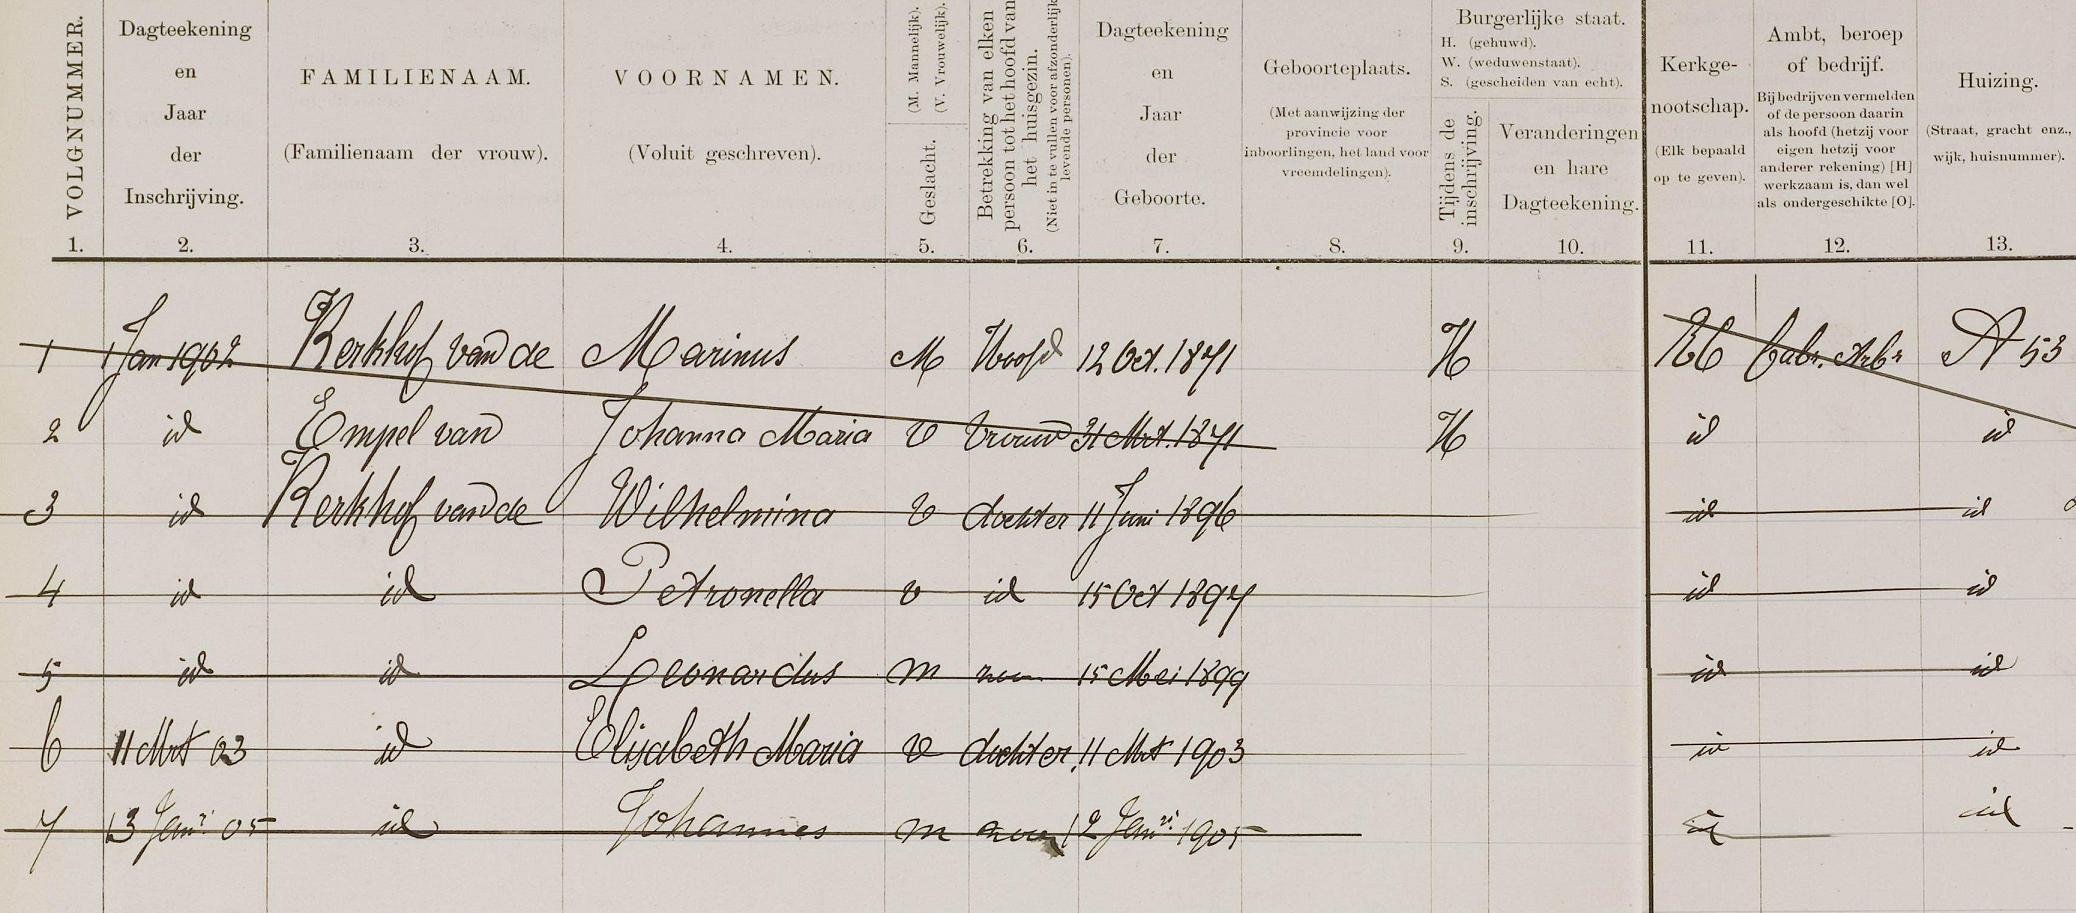 VOLGNUMMER.
1.
Dagteekening
en
Jaar
der
Inschrijving.
2.
FAMILIENAAM.
(Familienaam der vrouw).
3.
VOORNAMEN.
(Voluit geschreven).
4.
(M. Mannelijk).
(V. Vrouwelijk).
Geslacht.
5.
Betrekking van elken
persoon tot het hoofd van
het huisgezin.
(Niet in te vullen voor afzonderlijk
levende personen).
6.
Dagteekening
en
Jaar
der
Geboorte.
7.
Geboorteplaats.
(Met aanwijzing der
provincie voor
inboorlingen, het land voor
vreemdelingen).
8.
Burgerlijke staat.
H. (gehuwd).
W. (weduwenstaat).
S. (gescheiden van echt).
Tijdens de
inschrijving.
9.
Veranderingen
en hare
Dagteekening.
10.
Kerkge-
nootschap.
(Elk bepaald
op te geven).
11.
Ambt, beroep
of bedrijf.
Bij bedrijven vermelden
of de persoon daarin
als hoofd (hetzij voor
eigen hetzij voor
anderer rekening) [H]
werkzaam is, dan wel
als ondergeschikte [O].
12.
Huizing.
(Straat, gracht enz.,
wijk, huisnummer).
13.
1 1 Jan 1902 Kerkhof van de Marinus M Hoofd 12 Oct. 1871 H RC fabr. Arbr A 53
2 id Empel van Johanna Maria V Vrouw 31 Mrt. 1871 H id id
3 id Kerkhof van de Wilhelmina V dochter 11 Juni 1896 id id
4 id id Petronella v id 15 Oct 1897 id id
5 id id Leonardus m zoon 15 Mei 1899 id id
6 11 Mrt 03 id Elisabeth Maria V dochter 11 Mrt 1903 id id
7 13 Janri 05 id Johannes m zoon 12 Janri 1905 id id